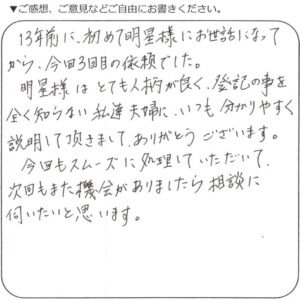 ▼ご感想、ご意見などご自由にお書きください。
13年前に、初めて明星様にお世話になって
から、今回3回目の依頼でした。
明星様はとても人柄が良く、登記の事を
全く知らない私達夫婦に、いつも分かりやすく
説明して頂きまして、ありがとうございます。
今回もスムーズに処理していただいて、
次回もまた機会がありましたら相談に
伺いたいと思います。